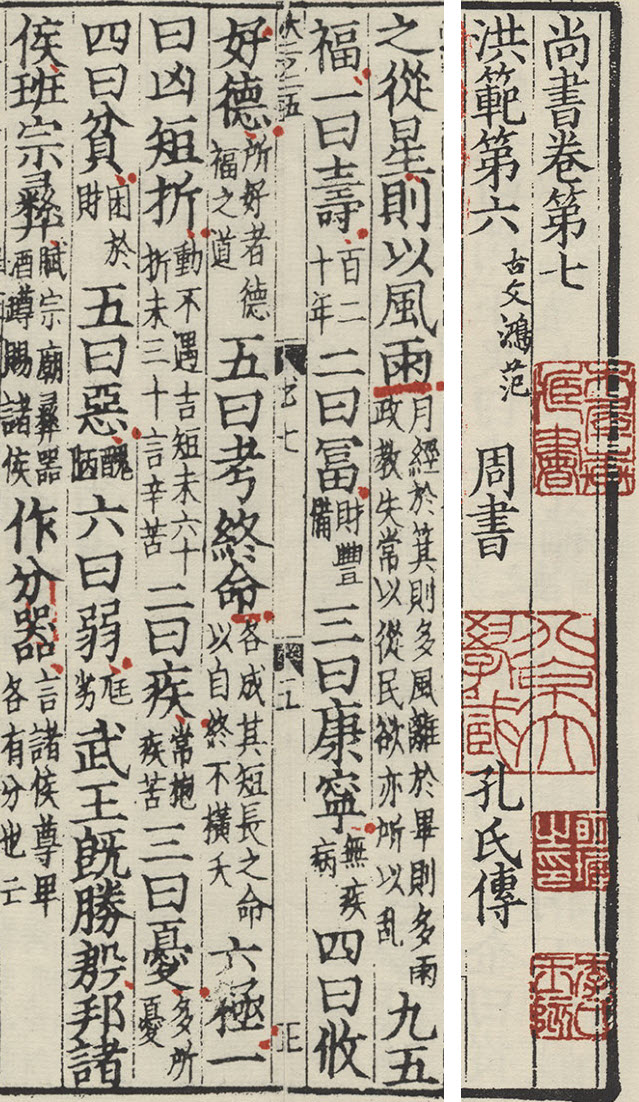 尚書卷第七
洪範第六 古文鴻范 周書 孔氏傳
之從星則以風雨 月經於箕則多風離於畢則多雨 政教失常以從民欲亦所以乱 九五
福一曰壽 百二十年 二曰冨 財豐備 三曰康寧 無疾病 四曰攸
好德 所好者德福之道 五曰考終命 各成其短長之命以自終不橫夭 六極一
曰凶短折 動不遇吉短未六十折未三十言辛苦 二曰疾 常抱疾苦 三曰憂 多所憂
四曰貧 困於財 五曰惡 醜陋 六曰弱 尫劣 武王旣勝殷邦諸
侯班宗彛 賦宗廟彛器酒罇賜諸侯 作分器 言諸侯尊卑各有分也亡